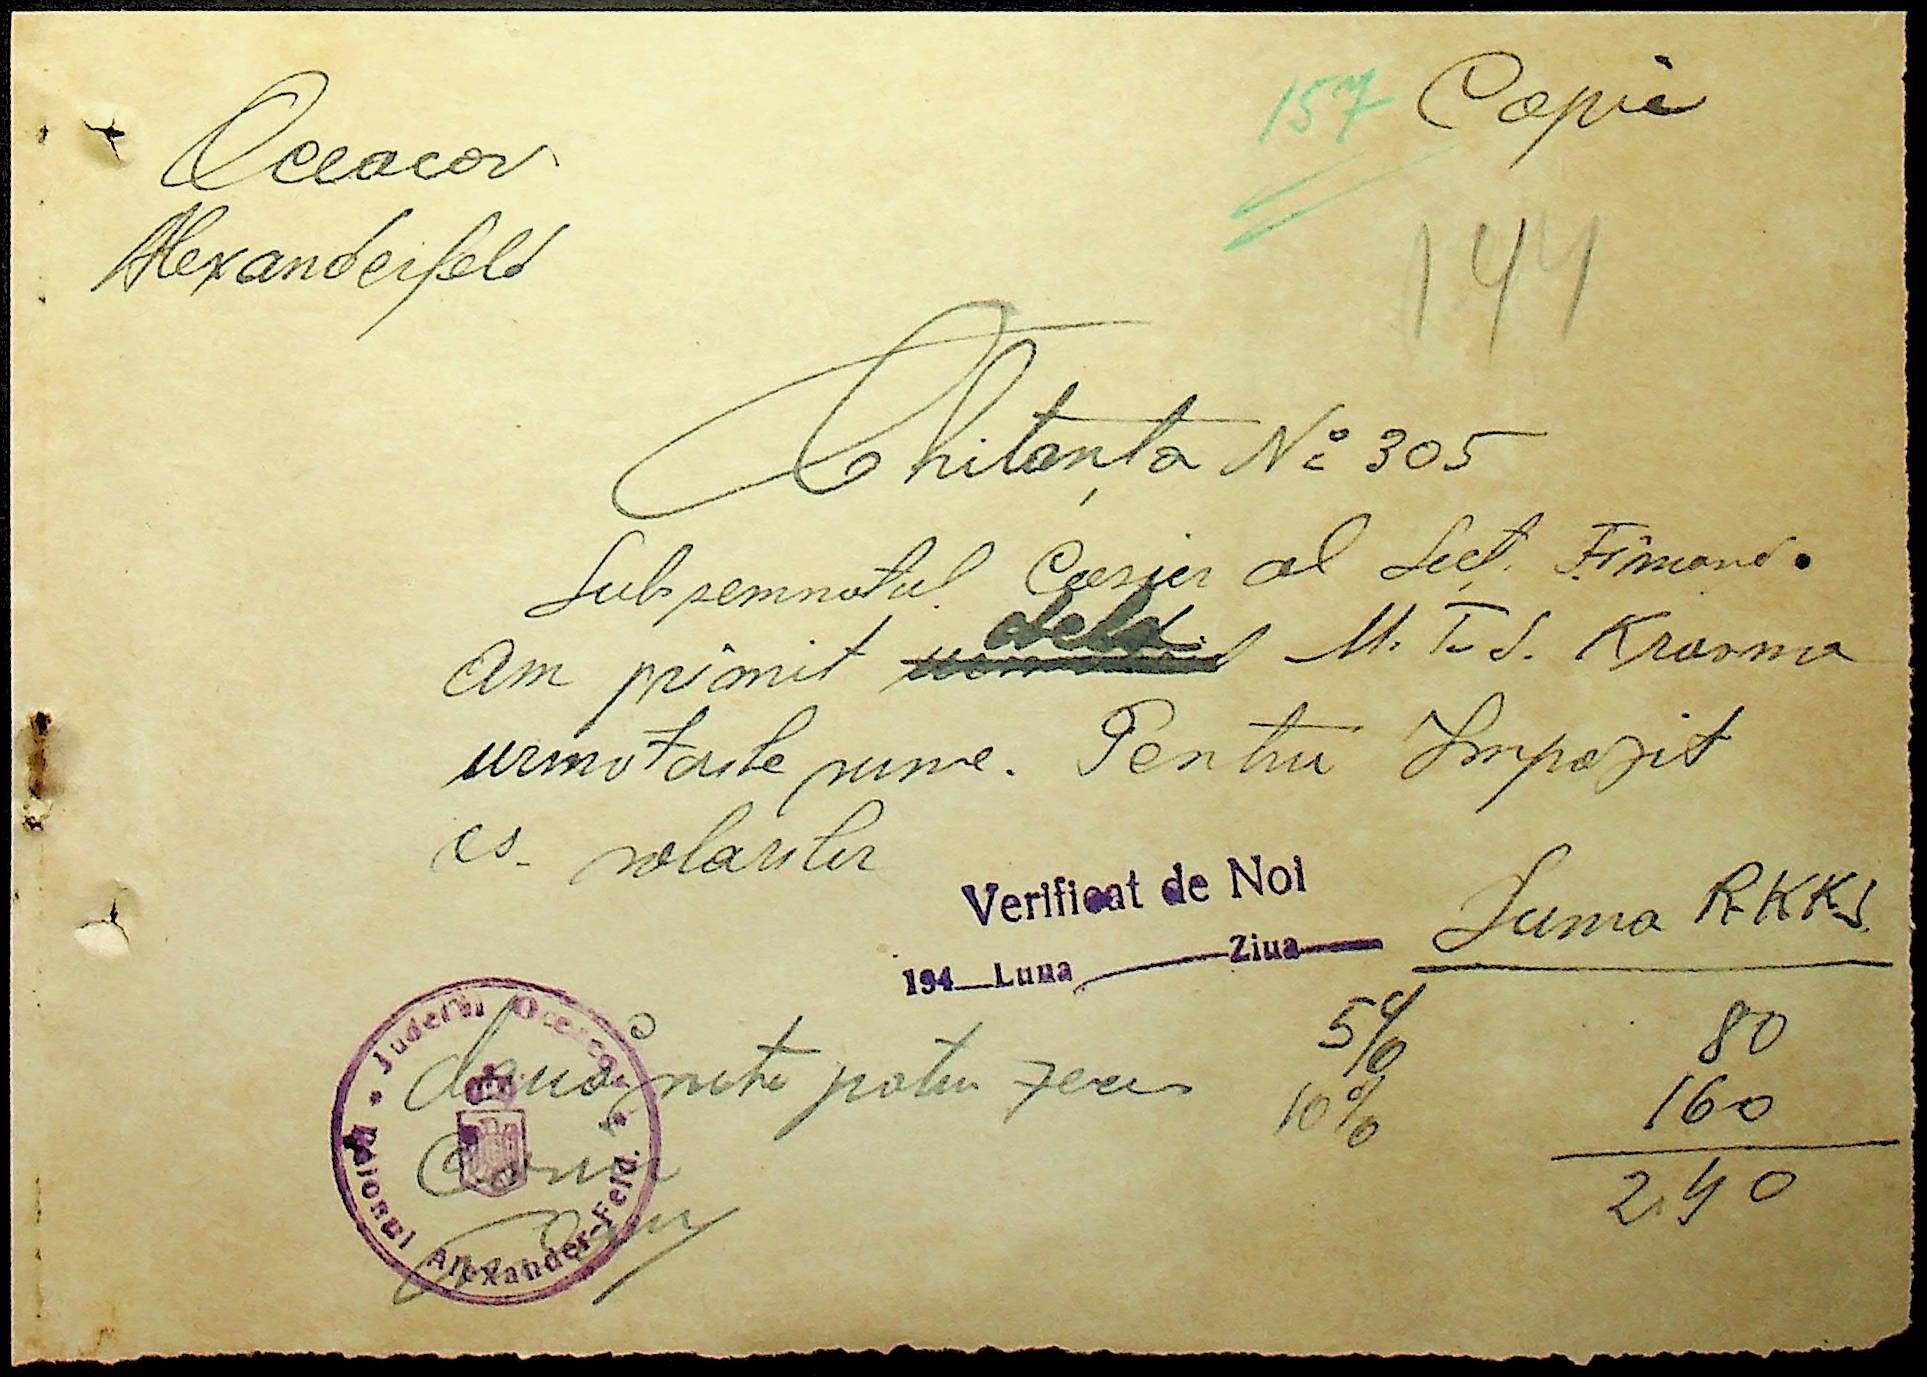 157 Copie
Oceacov
Alexanderfeld
144
Chitanţa No 305
Subsemnatul Casier al Secţ. Finanţ.
Am primit dela M. T. S. Krasna
urmotarile sume. Pentru Impozit
salarilor
Verificat de Noi
194 Luna Ziua
Suma RKKS
5% 80
10% 160
240
Două sute patru zeci
Casier
Judeţul Oceacov
Raionul Alexander-Feld.